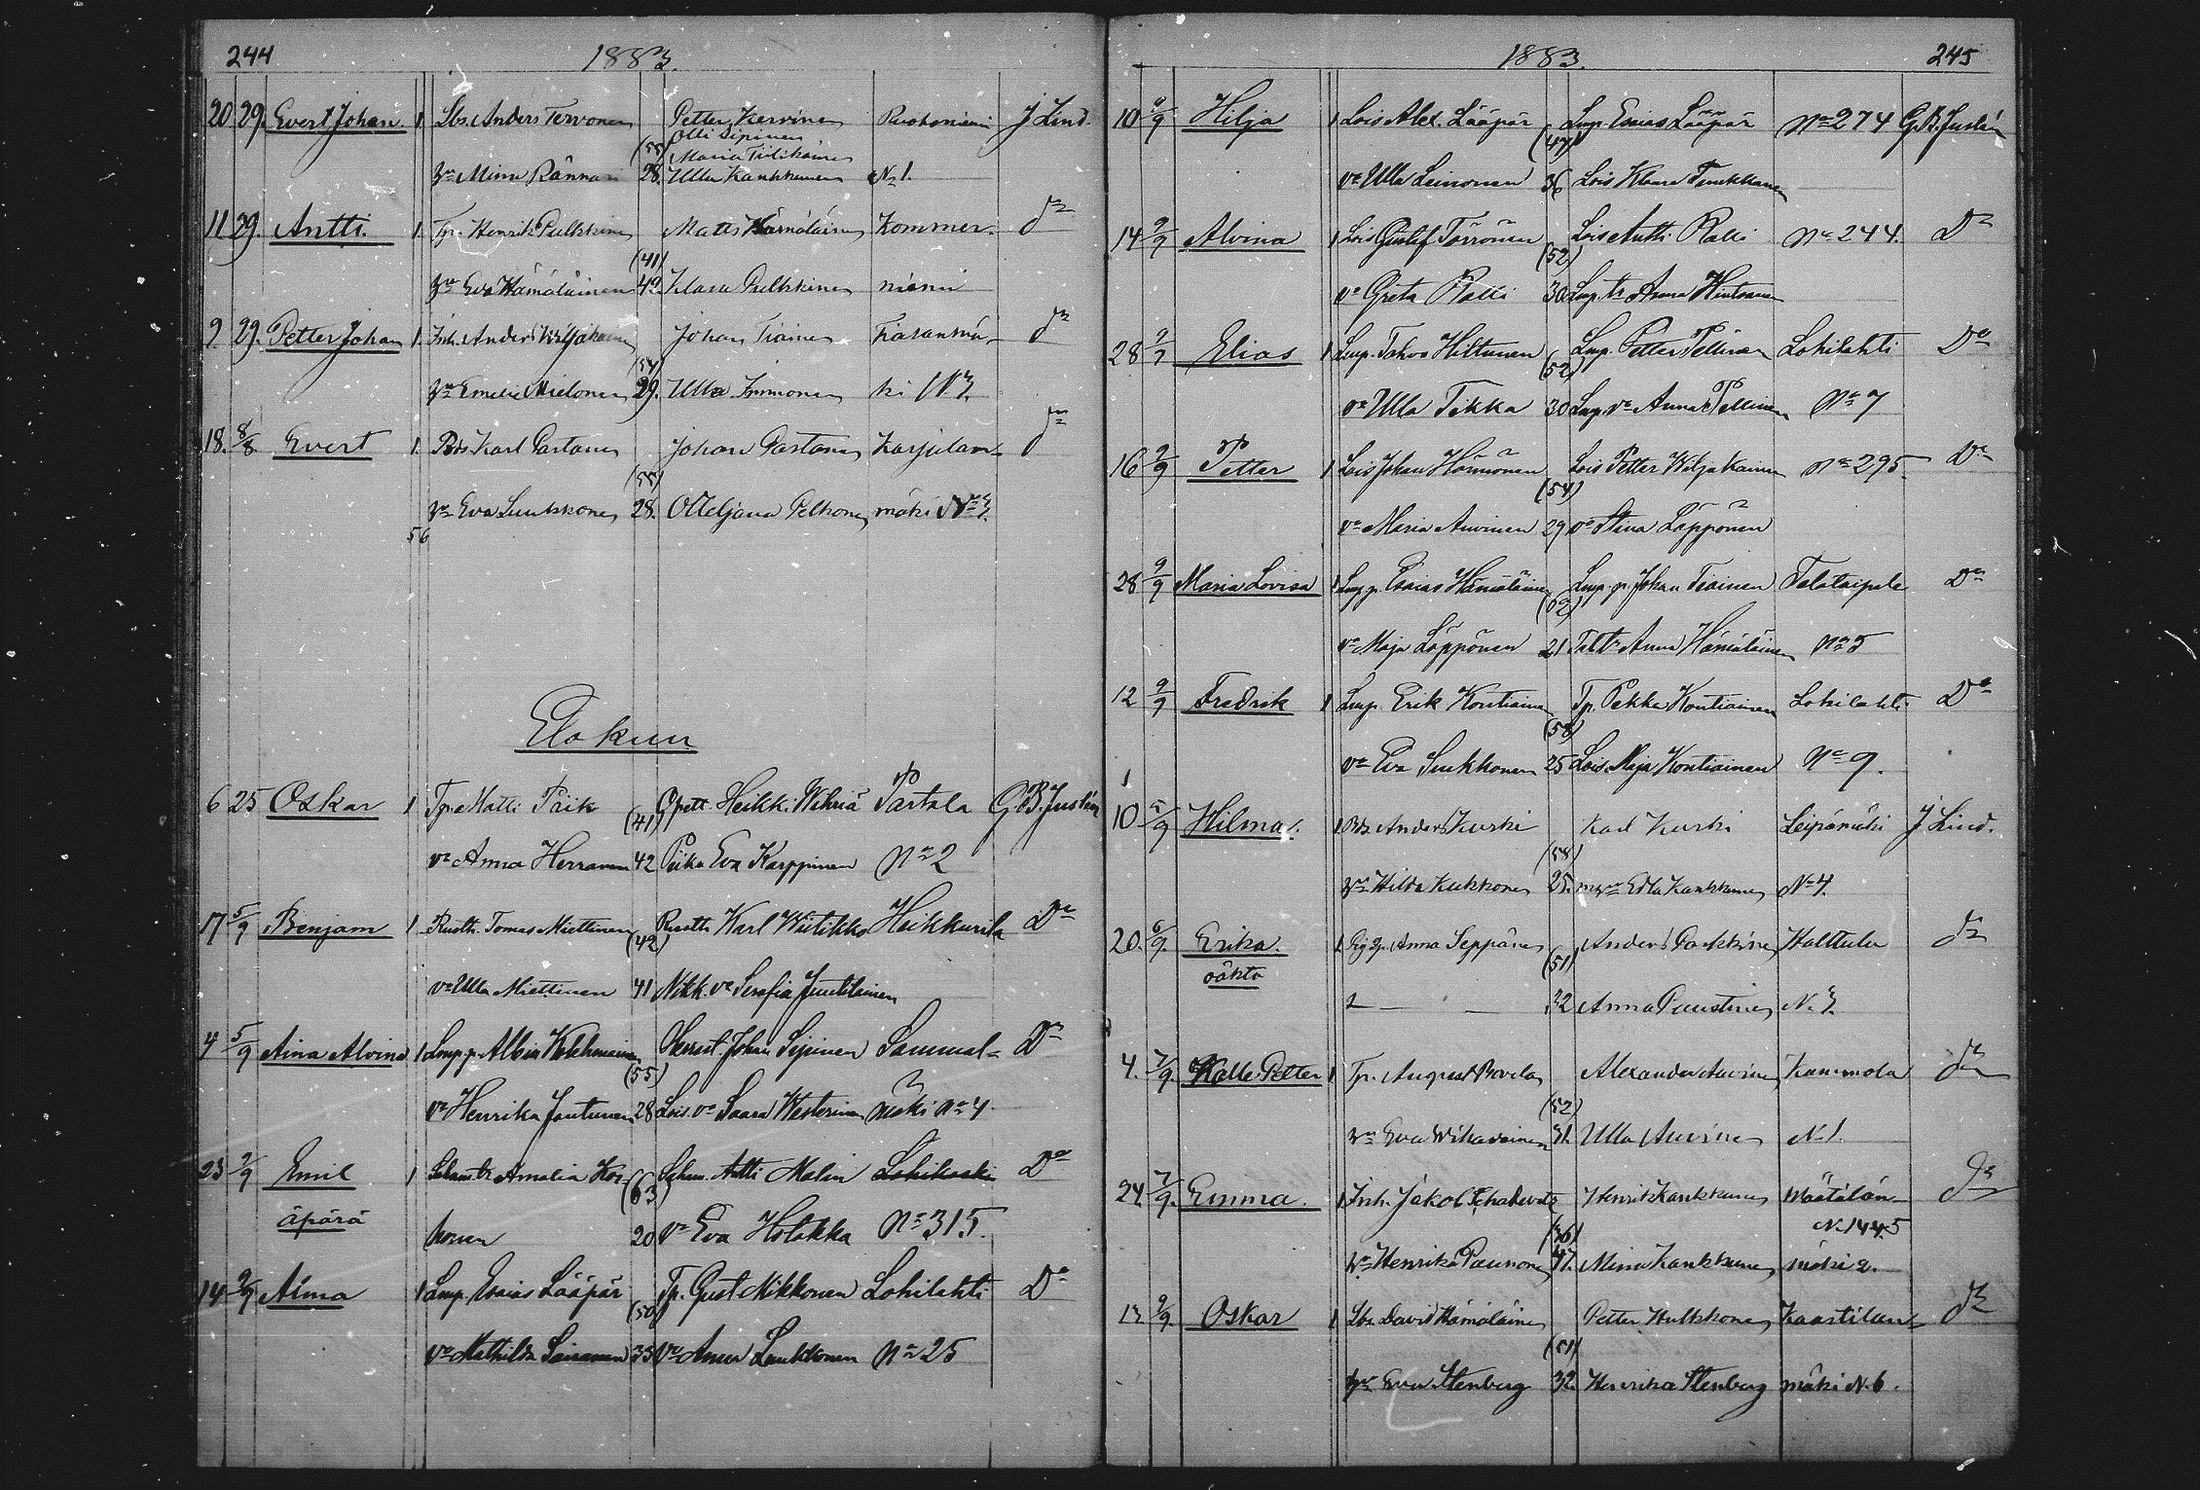 244 1883.
20 29. Evert Johan 1. Lbr. Anders Tervonen Petter Kervinen Ruokoniemi J Lind.
Olli Sipinen
(55) Maria Tiilikainen
Vmo Minna Rännäri 28. Ulla Kankkunen No 1.
11 29. Antti. 1. Tp. Henrik Pulkkinen Matts Hämäläinen Kommer- Do
(41)
Vmo Eva Hämäläinen 42. Klara Pulkkinen niemi
9. 29. Petter Johan 1. Inh. Anders Wiljakainen Johan Tiainen Do
(54)
Vmo Emelie Mielonen 29. Ulla Immonen ki No 3.
18. 8/8. Evert 1. Bds Karl Partanen Johan Partanen Karjulan- Do
(55)
Vmo Eva Luukkonen 28. Otteljana Pelkonen mäki No 3.
56
Elokuu
6 25 Oskar 1 Tp. Matti Päik Opett. Heikki Wihriä Partala G.B. Juslén
(41)
vo Anna Herranen 42 Piika Eva Karppinen No 2
17 5/9 Benjam 1 Ruoth. Tomas Miettinen Ruoth. Karl Wiitikko Heikkurila Do
(42)
vo Ulla Miettinen 41 Nikk. vo Serafia Juutilainen
4 5/9 Aina Alvina 1 Lmp. p. Albin Kokkonen Johan Sipinen Sammal= Do
(55)
vo Henrika Jantunen 28 Lois. vo Saara Westerinen mäki No 4
23 2/9 Emil 1 Amalia Kor- Antti Malin Lohikoski Do
(63)
äpärä honen 20 vo Eva Holokka No 315.
14 9/9 Alma 1 Lmp. Esaias Lääpär Tp. Gust Nikkonen Lohilahti Do
(50)
vo Mathilda Sairanen 33 vo Anna Luukkonen No 25
1883. 245
10 9/9 Hilja 1 Lois Alex. Lääpär Lmp. Esaias Lääpär No 274 G.B. Juslén
(47)
vo Ulla Leinonen 36 Lois Klaara Turukkanen
14 9/9 Alvina 1 Lois Gustaf Törrönen Lois Antti Ralli No 244. Do
(52)
vo Greta Ralli 30 Lmp. tr Anna Hintsanen
28 9/7 Elias 1 Lmp. Tahvo Hiltunen Lmp. Petter Pellinen Lohilahti Do
(52)
vo Ulla Tikka 30 Lmp. vo Anna Pellinen No 7
16 9/9 Petter 1 Lois Johan Hämönen Lois Petter Wiljakainen No 295. Do
(54)
vo Maria Auvinen 29 vo Stina Löppönen
28 9/9 Maria Lovisa 1 Lmp. p. Esaias Hämäläinen Lmp. p. Johan Tiainen Telataipale Do
(62)
vo Maja Löppönen 21 Tal. tr Anna Hämäläinen No 5
12 9/9 Fredrik 1 Lmp. Erik Kontiainen Tp. Pekka Kontiainen Lohilahti Do
(58)
vo Eva Suukkonen 25 Lois Maja Kontiainen No 9.
1
10 5/9 Hilma. 1 Bds Anders Kurki Karl Kurki Leipämäki J Lind.
(58)
Vmo Hilda Kukkonen 25. Edla Kankkunen No 4.
20. 6/9. Erika. 1 Anna Seppänen Anders Parkkinen Halttula Do
(51)
oäkta 32 Anna Puustinen No 3.
4. 7/9. Kalle Petter 1 Tp. August Rovela Alexander Auvinen Kammola Do
(52)
Vmo Eva Wihavainen 31. Ulla Auvinen No 1.
24. 7/9. Emma. 1 Inh. Jakob Tschakurtz Henrik Kankkunen Määtälän- Do
(36) No 144.5
Vmo Henrika Paunonen 47. Minna Kankkunen mäki 2.
13 9/9. Oskar 1 Lbr David Hämäläinen Petter Hulkkonen Kaartilan- Do
(51)
Vmo Eva Stenberg 32. Henrika Stenberg mäki No 6.